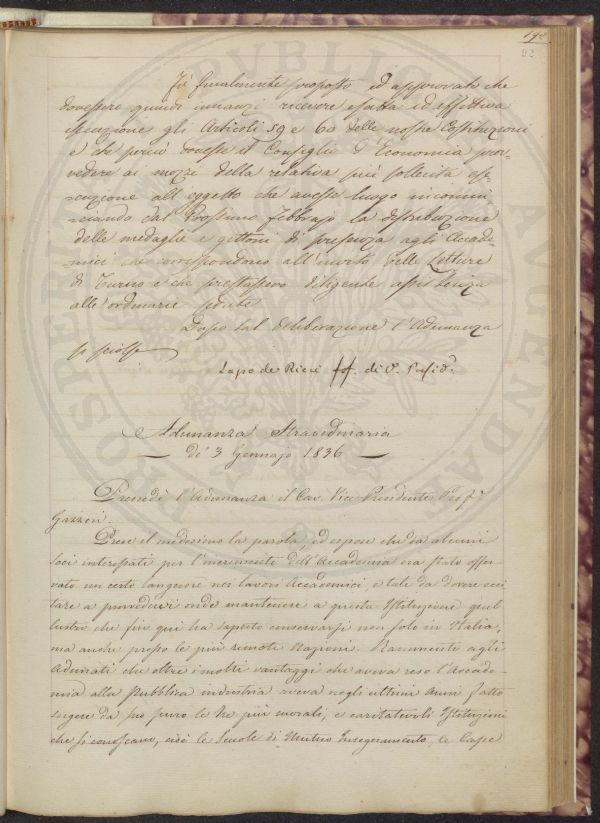 192
92
Fù finalmente proposto ed approvato che
dovessero quindi innanzi ricevere esatta ed effettiva
esecuzione gli Articoli 59 e 60 delle nostre Costituzioni
e che perciò dovesse il Consiglio d'Economia prov-
vedere ai mezzi della relativa più sollecita ese
cuzione all'oggetto che avesse luogo incomin
ciando dal prossimo Febbrajo la distribuzione
delle medaglie e gettoni di presenza agli Accade-
mici che corrispondono all'invito delle Letture
di Turno e che prestassero diligente assistenza
alle ordinarie sedute
Dopo tal deliberazione l'Adunanza
si sciolse
Lapo de Ricci ff. di V. Presid.e
Adunanza Straordinaria
de' 3 Gennajo 1836
Presedè l'Adunanza il Cav. Vice-Presidente Prof.r
Gazzeri.
Prese il medesimo la parola, ed espose che da alcuni
soci interessati per l'incremento dell'Accademia era stato osser-
vato un certo languore nei lavori Accademici e tale da dovere ecci
tare a provvedervi onde mantenere a questa Istituzione quel
lustro che fin quì ha saputo conservarsi non solo in Italia,
ma anche presso le più remote Nazioni. Rammentò agli
Adunati che oltre i molti vantaggi che aveva reso l'Accade-
mia alla pubblica industria aveva negli ultimi Anni fatto
sorgere da suo seno le tre più morali, e caritatevoli Istituzioni
che si conoscano, cioè le Scuole di Mutuo Insegnamento, le Casse
PROSPERITATI PUBLICAE AUGENDAE